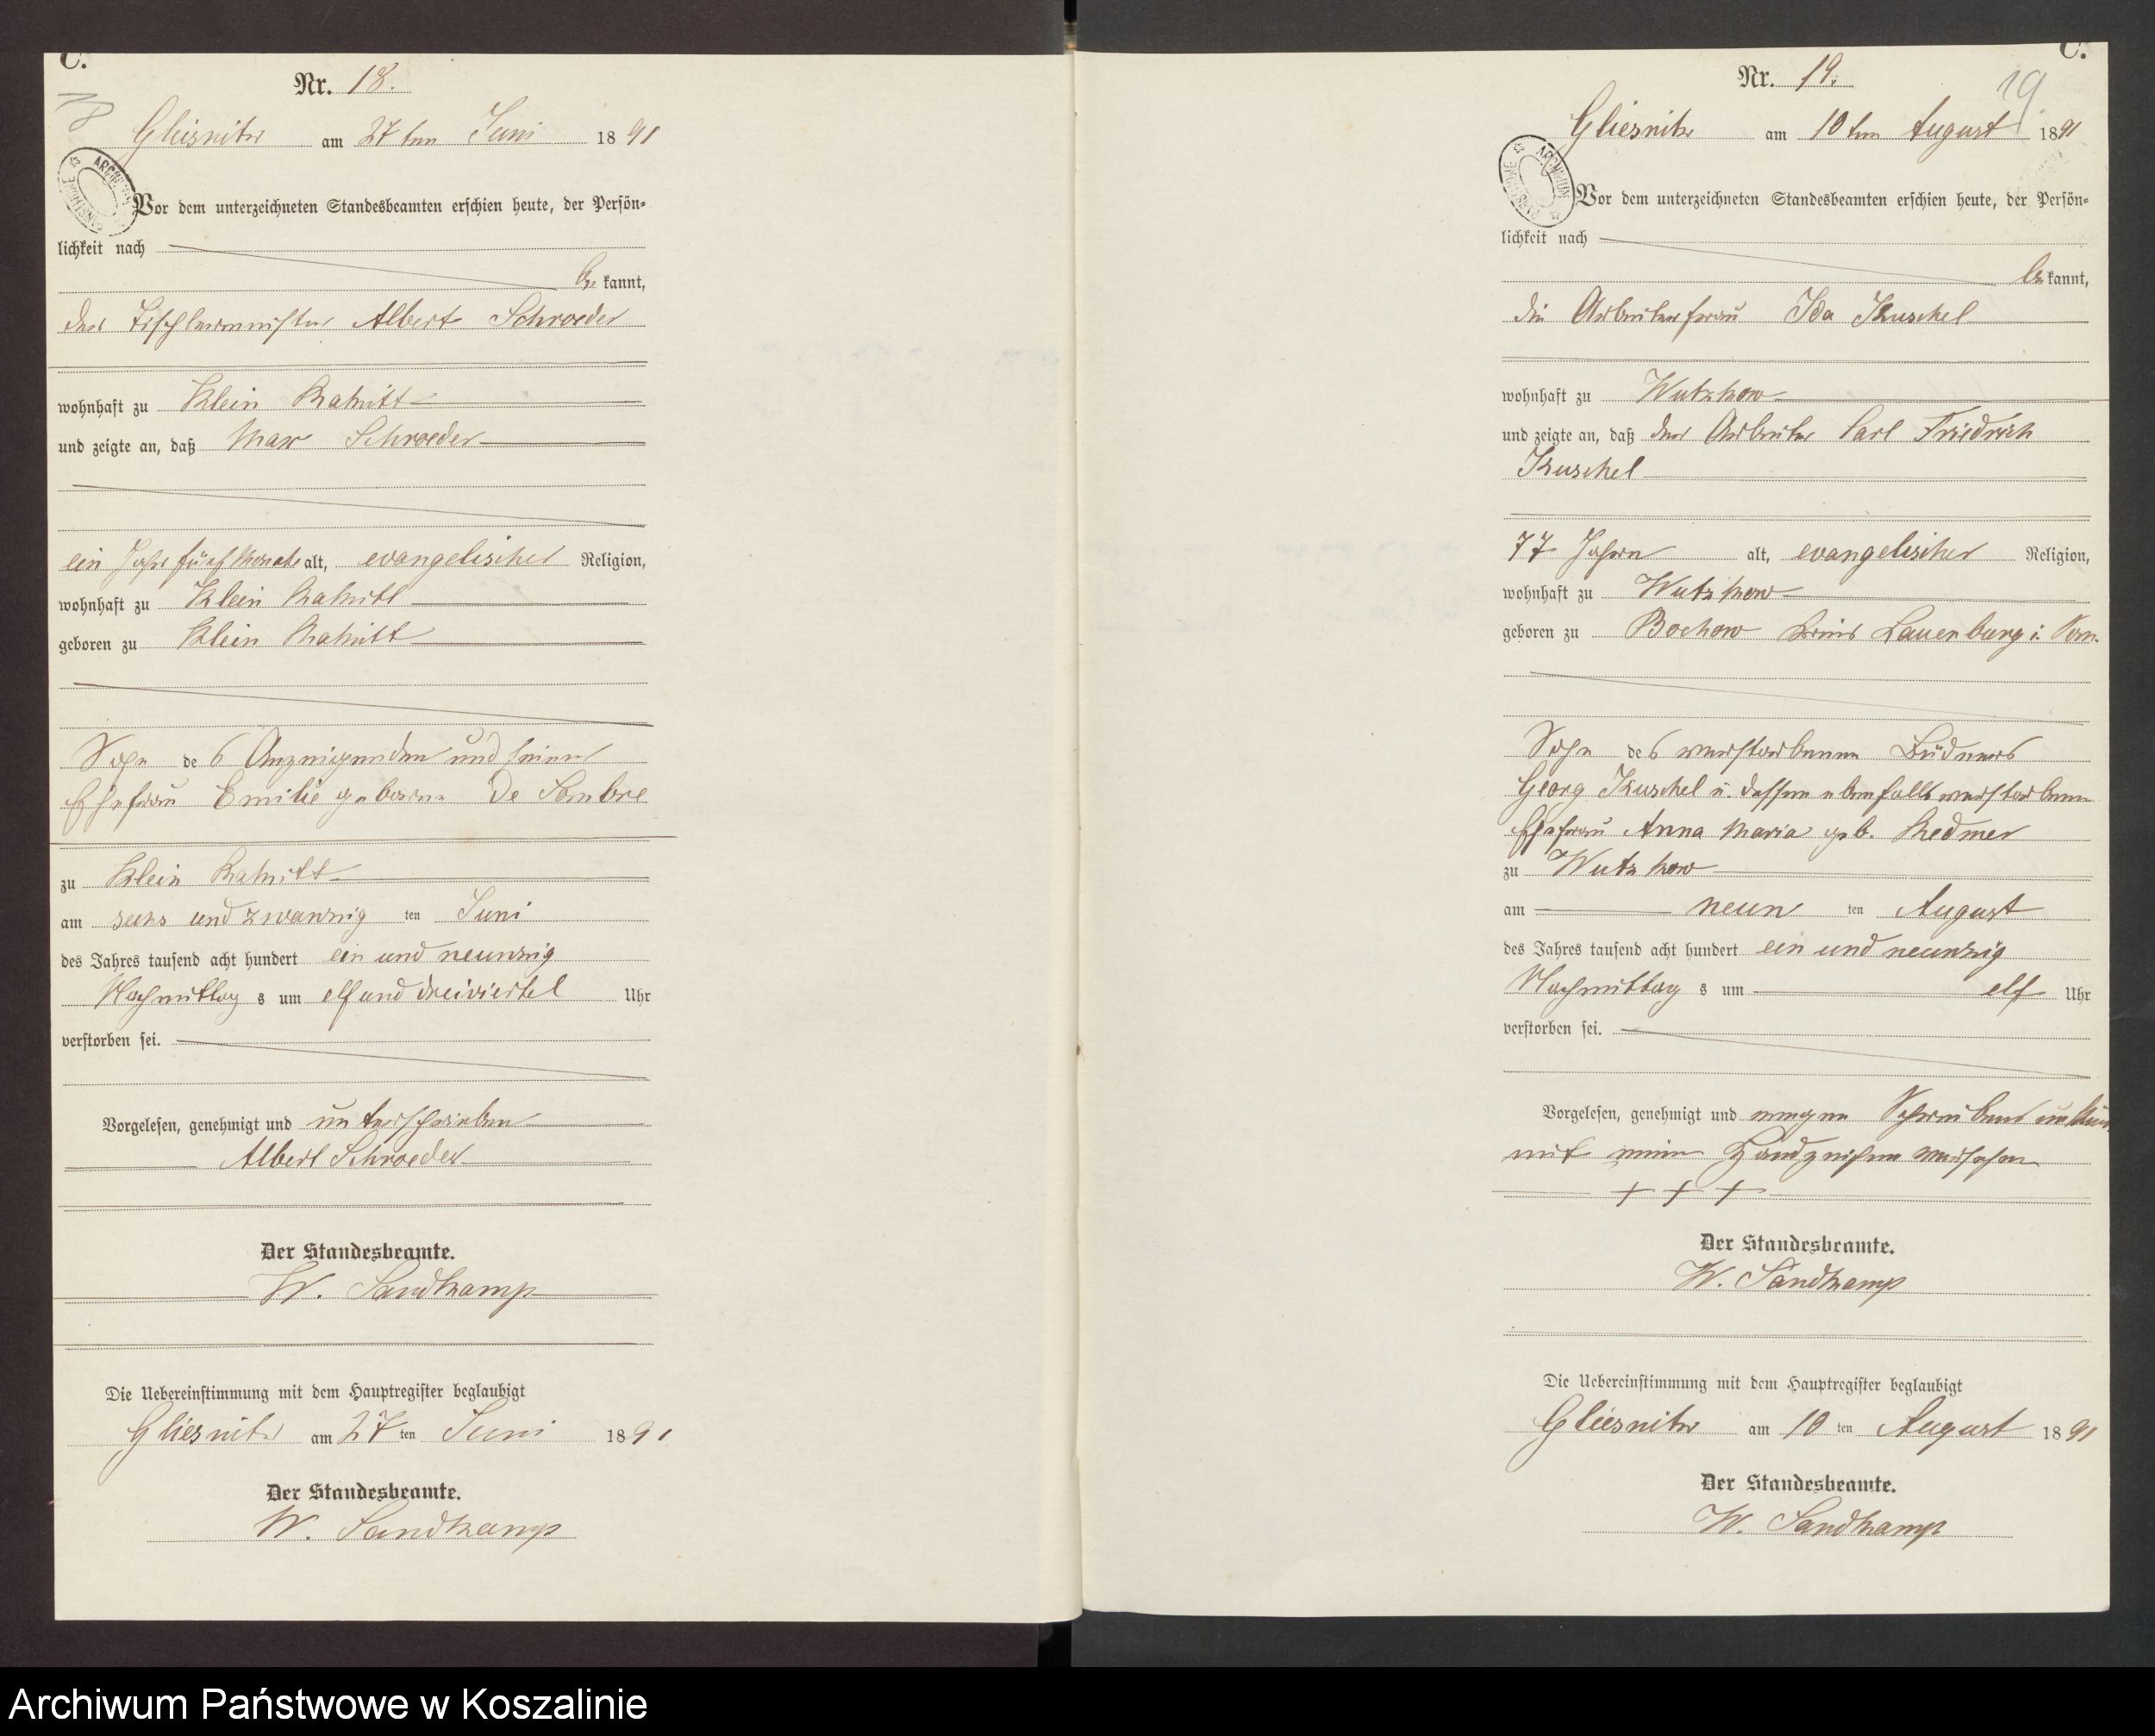 C.
18
Nr. 18.
Gliesnitz am 27ten Juni 1891
Vor dem unterzeichneten Standesbeamten erschien heute, der Persön-
lichkeit nach
be kannt,
der Tischlermeister Albert Schroeder
wohnhaft zu Klein Rakitt
und zeigte an, daß Max Schroeder
ein Jahr fünf Monate alt, evangelischer Religion,
wohnhaft zu Klein Rakitt
geboren zu Klein Rakitt
Sohn des Anzeigenden und seiner
Ehefrau Emilie geborene De Sombre
zu Klein Rakitt
am sechs und zwanzig ten Juni
des Jahres tausend acht hundert ein und neunzig
Nachmittag s um elf und dreiviertel Uhr
verstorben sei.
Vorgelesen, genehmigt und unterschrieben
Albert Schroeder
Der Standesbeamte.
W. Sandkamp
Die Uebereinstimmung mit dem Hauptregister beglaubigt
Gliesnitz am 27 ten Juni 1891
Der Standesbeamte.
W. Sandkamp
C.
19
Nr. 19.
Gliesnitz am 10ten August 1891
ARCHIWUM
Vor dem unterzeichneten Standesbeamten erschien heute, der Persön-
lichkeit nach
be kannt,
die Arbeiterfrau Ida Kuschel
wohnhaft zu Wutzkow
und zeigte an, daß der Arbeiter Carl Friedrich
Kuschel
77 Jahren alt, evangelischer Religion,
wohnhaft zu Wutzkow
geboren zu Bochow Kreis Lauenburg i. Pom.
Sohn des verstorbenen Büdners
Georg Kuschel u. dessen ebenfalls verstorbenen
Ehefrau Anna Maria geb. Redmer
zu Wutzkow
am neun ten August
des Jahres tausend acht hundert ein und neunzig
Nachmittag s um elf Uhr
verstorben sei.
Vorgelesen, genehmigt und wegen Schreibens
mit einem Handzeichen versehen
+ + +
Der Standesbeamte.
W. Sandkamp
Die Uebereinstimmung mit dem Hauptregister beglaubigt
Gliesnitz am 10 ten August 1891
Der Standesbeamte.
W. Sandkamp
Archiwum Państwowe w Koszalinie